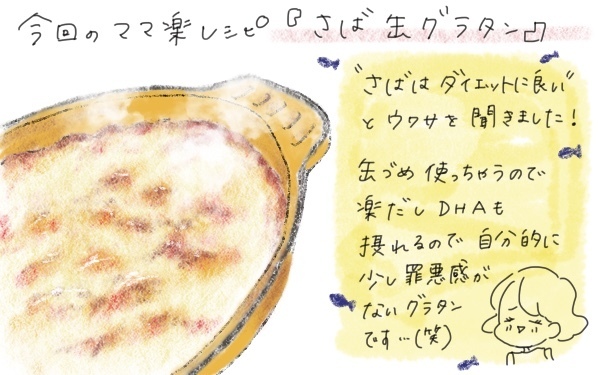 今回のママ楽レシピ『さば缶グラタン』
"さばは ダイエットに良い"
とウワサを聞きました!
缶づめ使っちゃうので
楽だしDHAも
摂れるので自分的に
少し罪悪感が
ないグラタン
です…(笑)